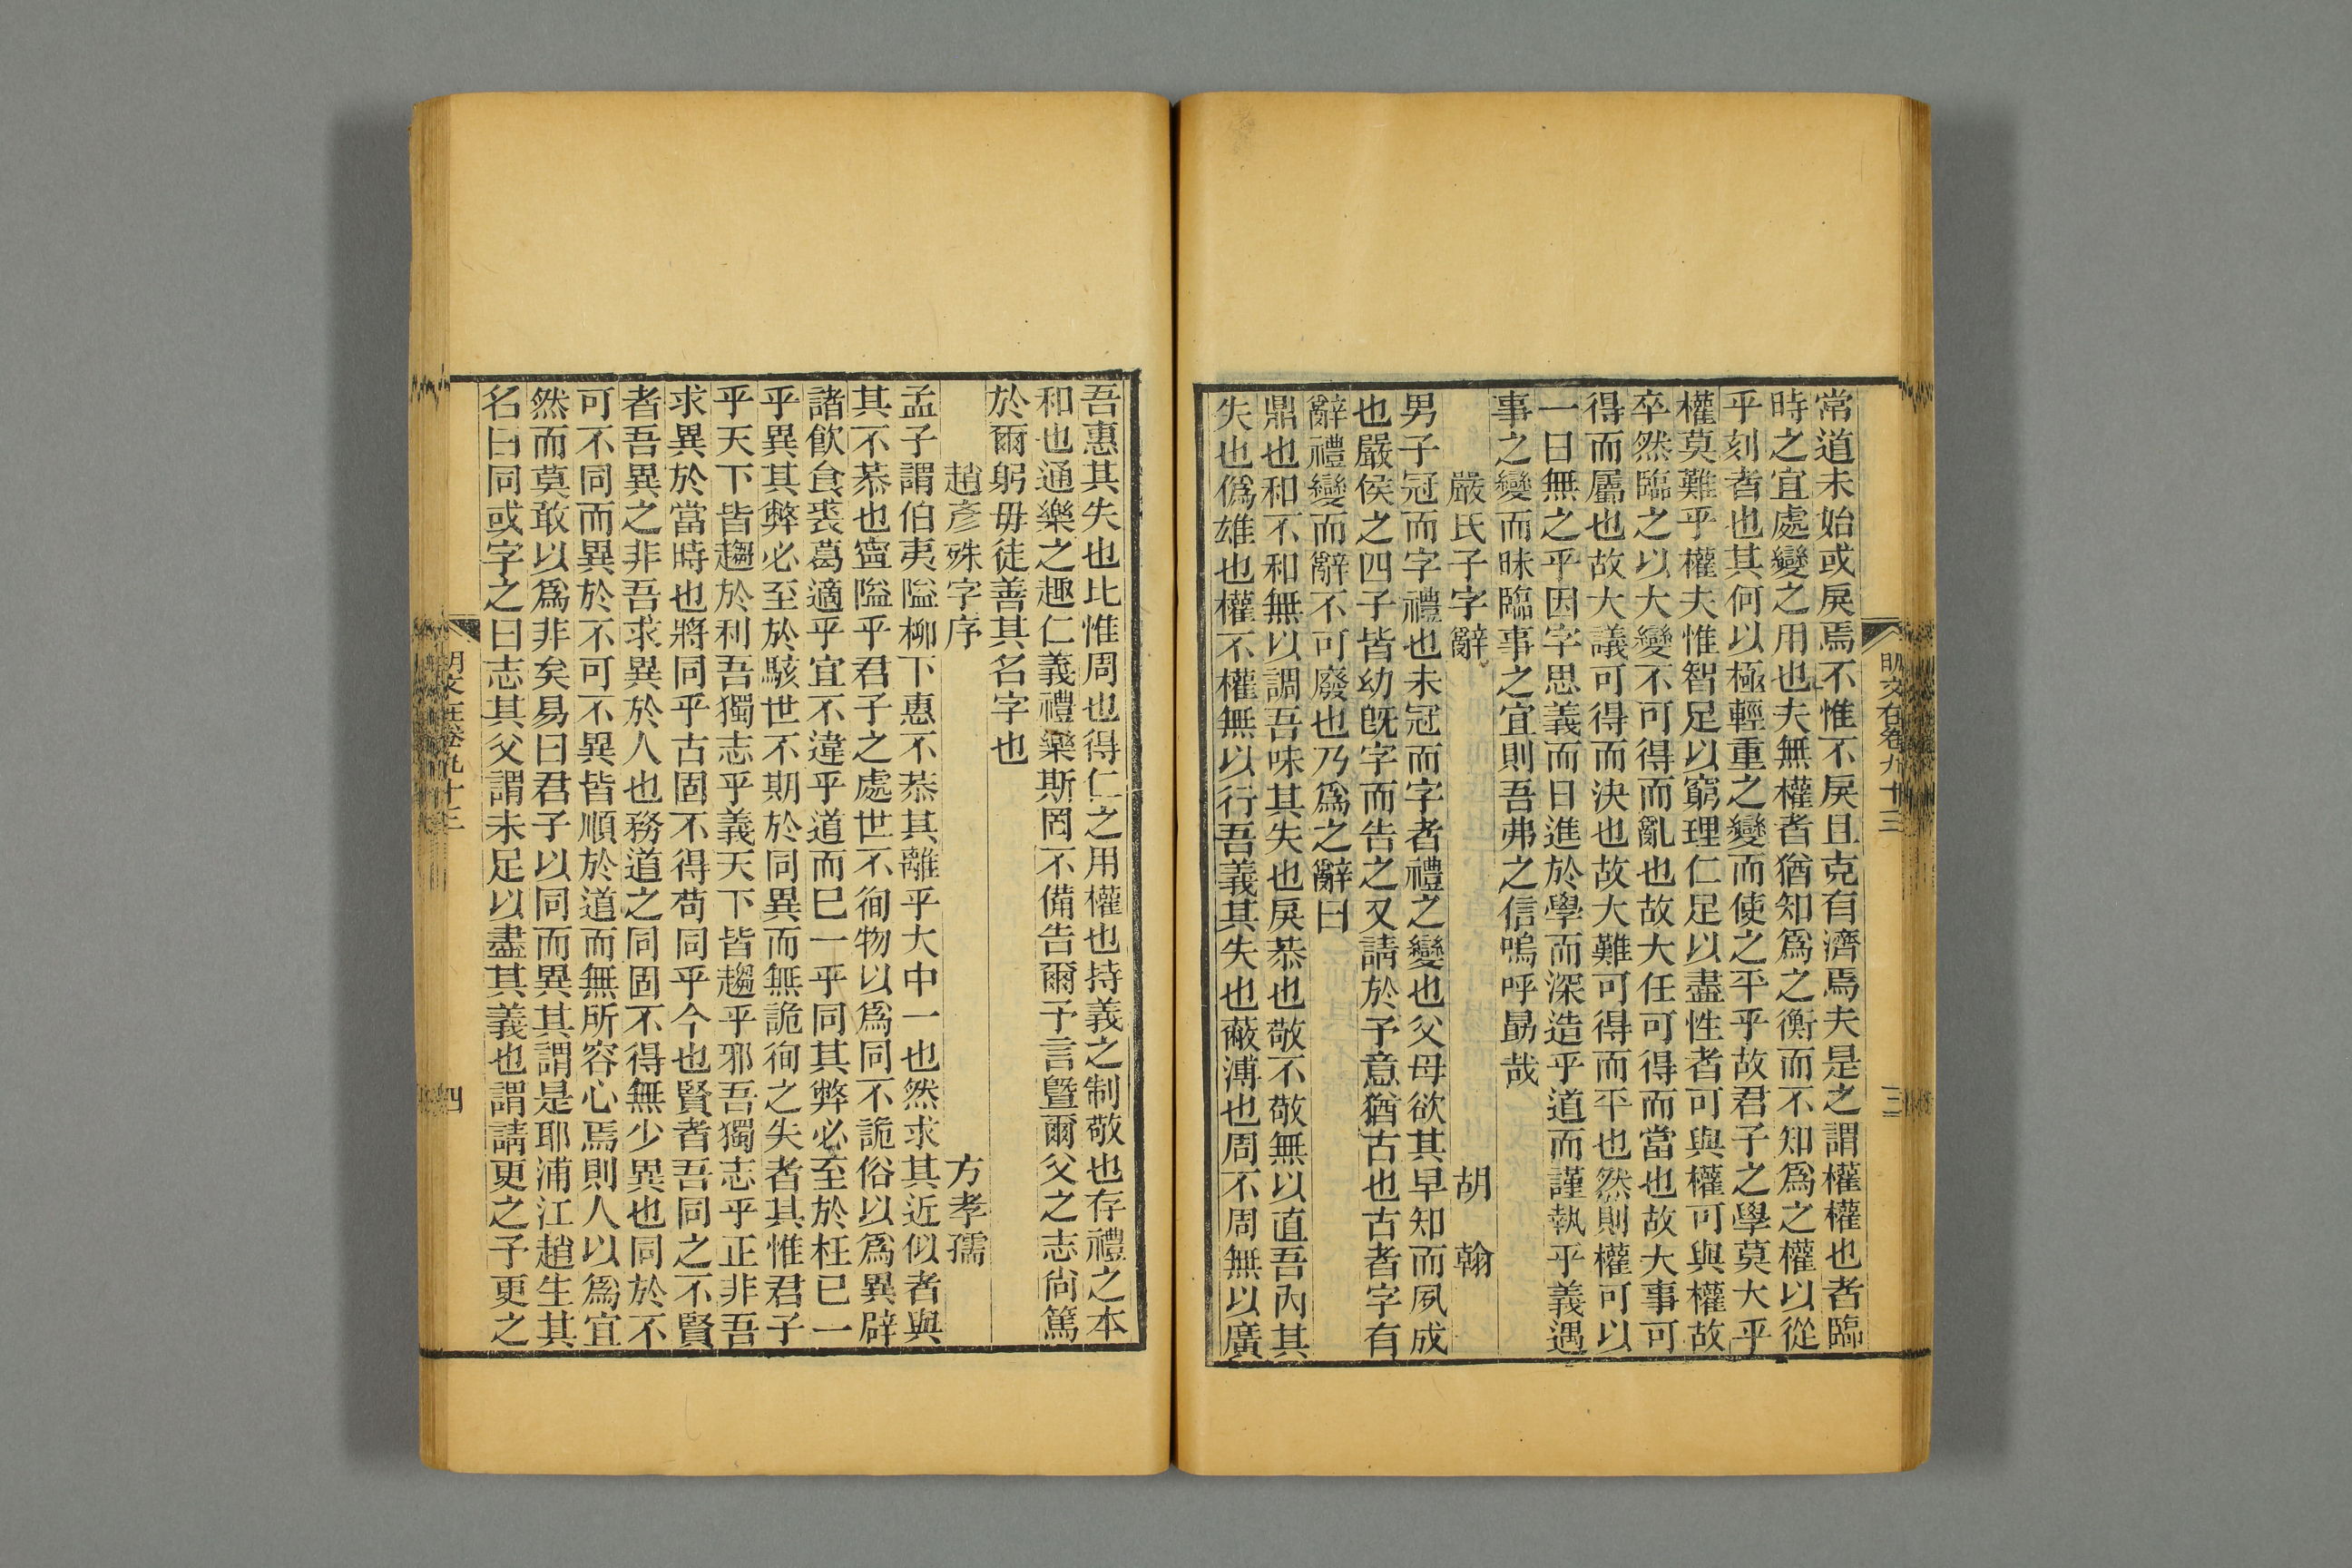 常道未始或戾焉不惟不戾且克有濟焉夫是之謂權權也者臨
時之宜處變之用也夫無權者猶知爲之衡而不知爲之權以從
乎刻者也其何以極輕重之變而使之平乎故君子之學莫大乎
權莫難乎權夫惟智足以窮理仁足以盡性者可與權可與權故
卒然臨之以大變不可得而亂也故大任可得而當也故大事可
得而屬也故大議可得而決也故大難可得而平也然則權可以
一日無之乎因字思義而日進於學而深造乎道而謹執乎義遇
事之變而昧臨事之宜則吾弗之信嗚呼勗哉
嚴氏子字辭 胡翰
男子冠而字禮也未冠而字者禮之變也父母欲其早知而夙成
也嚴侯之四子皆幼旣字而告之又請於予意猶古也古者字有
辭禮變而辭不可廢也乃爲之辭曰
鼎也和不和無以調吾味其失也戾恭也敬不敬無以直吾內其
失也僞雄也權不權無以行吾義其失也蔽溥也周不周無以廣
明文在卷九十三
三
吾惠其失也比惟周也得仁之用權也持義之制敬也存禮之本
和也通樂之趣仁義禮樂斯罔不備告爾予言曁爾父之志尙篤
於爾躬毋徒善其名字也
趙彥殊字序 方孝孺
孟子謂伯夷隘柳下惠不恭其離乎大中一也然求其近似者與
其不恭也寧隘乎君子之處世不徇物以爲同不詭俗以爲異辟
諸飮食裘葛適乎宜不違乎道而已一乎同其弊必至於枉已一
乎異其弊必至於駭世不期於同異而無詭徇之失者其惟君子
乎天下皆趨於利吾獨志乎義天下皆趨乎邪吾獨志乎正非吾
求異於當時也將同乎古固不得苟同乎今也賢者吾同之不賢
者吾異之非吾求異於人也務道之同固不得無少異也同於不
可不同而異於不可不異皆順於道而無所容心焉則人以爲宜
然而莫敢以爲非矣易曰君子以同而異其謂是耶浦江趙生其
名曰同或字之曰志其父謂未足以盡其義也謂請更之予更之
明文在卷九十三
四